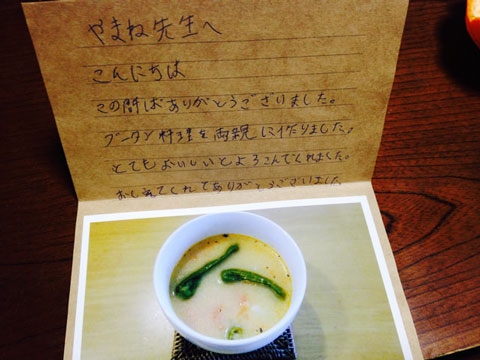 やまね先生へ
こんにちは
この間はありがとうございました。
ブータン料理を両親に作りました。
とてもおいしいとよろこんでくれました。
おしえてくれてありがとうございました。